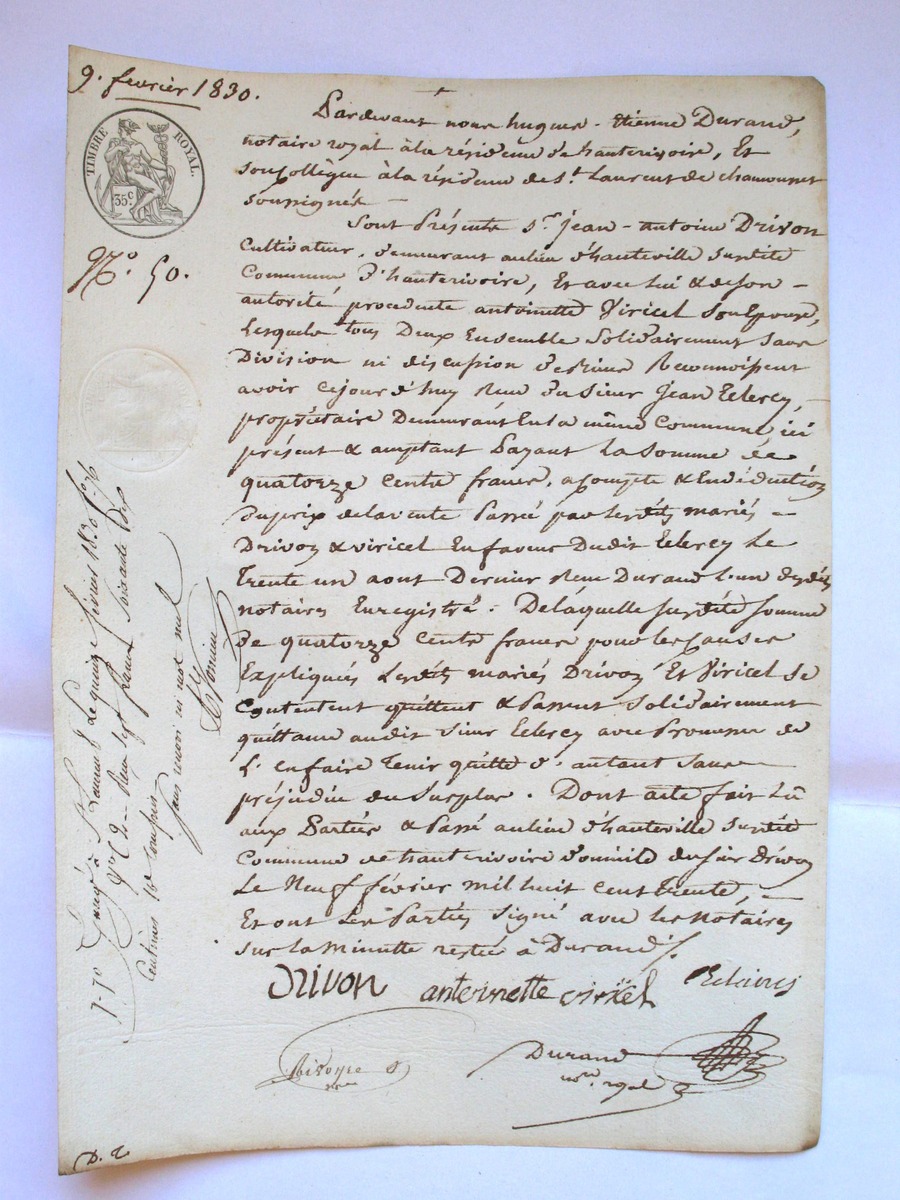 9. fevrier 1830.
TIMBRE ROYAL.
35c
N.º 50.
Pardevant nous hugues - Etienne Durand,
notaire royal à la résidence d'hauterivoire, Et
son Collègue à la résidence de St. Laurent de chamousset
soussignés —
Sont Présents Sr. jean - antoine Drivon
Cultivateur, demeurant au lieu d'hauteville susdite
Commune d'hauterivoire, Et avec lui & de son -
autorité, procedente antoinette Viricel son Epouse,
Lesquels tous Deux Ensemble Solidairement sans
Division ni discussion Reconnoissent
avoir cejourd'huy Reçu du Sieur Jean
propriétaire Demeurant En la même Commune, ici
présent & acceptant Payant La Somme de
quatorze Cents francs, acompte & En déduction
du prix de la vente Passée par lesdits mariés -
Drivon & viricel En faveur Dudit Le
trente un aout Dernier Reçu Durand L'un desdits
notaires Enregistré. De laquelle susdite somme
de quatorze Cents francs pour les Causes
Expliquées Lesdits mariés Drivon Et Viricel se
Contentent quittent & Passent Solidairement
quittance audit Sieur avec Promesse de
L'en faire Tenir quitte d'autant Sans
préjudice du Surplus. Dont acte fait Lu
aux Parties & Passé au lieu d'hauteville susdite
Commune de hauterivoire domicile du sieur Drivon
Le Neuf février mil huit cent Trente, -
Et ont Les Parties signé avec les Notaires
sur la minute restée à Durand
Drivon antoinette viricel
Durand
nore. royal
Enregé à St Laurent Le quinze février 1830 fo
Reçu sept francs
Centimes 10e compris